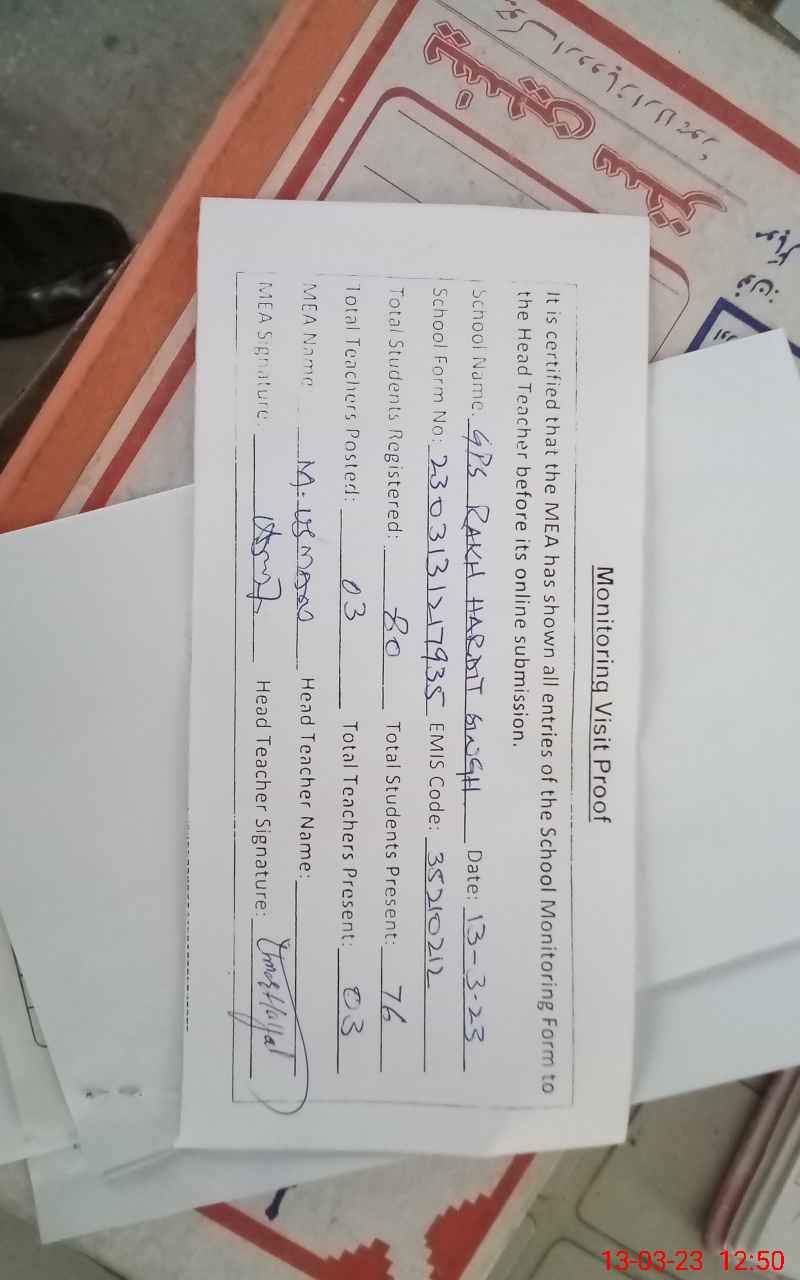 Monitoring Visit Proof
It is certified that the MEA has shown all entries of the School Monitoring Form to
the Head Teacher before its online submission.
School Name: GPS RAKH HARDIT SINGH Date: 13-3-23
School Form No: 2303131217935 EMIS Code: 35210212
Total Students Registered: 80 Total Students Present: 76
Total Teachers Posted: 03 Total Teachers Present: 03
MEA Name M. Usman Head Teacher Name:
MEA Signature: Head Teacher Signature:
13-03-23 12:50